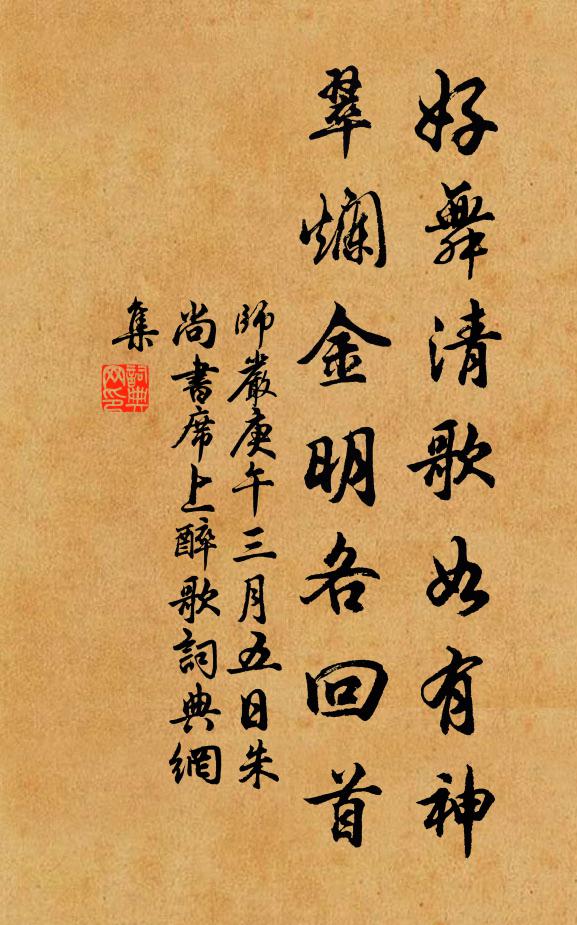 好舞清歌如有神
翠爛金明各回首
師嚴庚午三月五日朱
尚書席上醉歌詞典網
集
詞典
网印